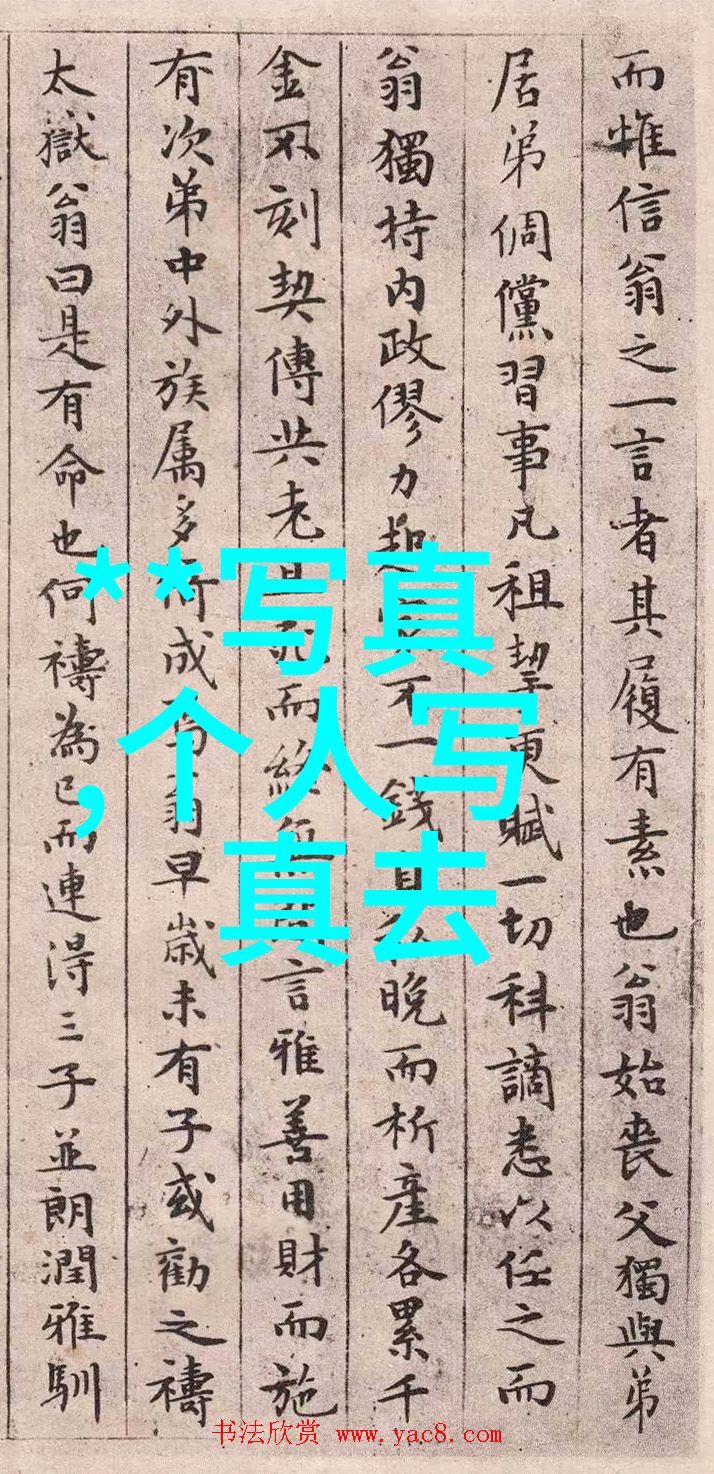 而惟信翁之一言者其履有素也翁始喪父獨與弟
居弟倜儻習事凡租挈更賦一切科謫悉以任之而
翁獨持内政僇力起不一錢晚而析產各累千
金不刻契傳共老且死而終言雅善用財而施
有次弟中外族属多所成翁早歲未有子或勸之禱
太獄翁曰是有命也何禱為已而連得三子並朗潤雅馴
**写真
,个人写
真去
书法欣赏 www.yac8.com